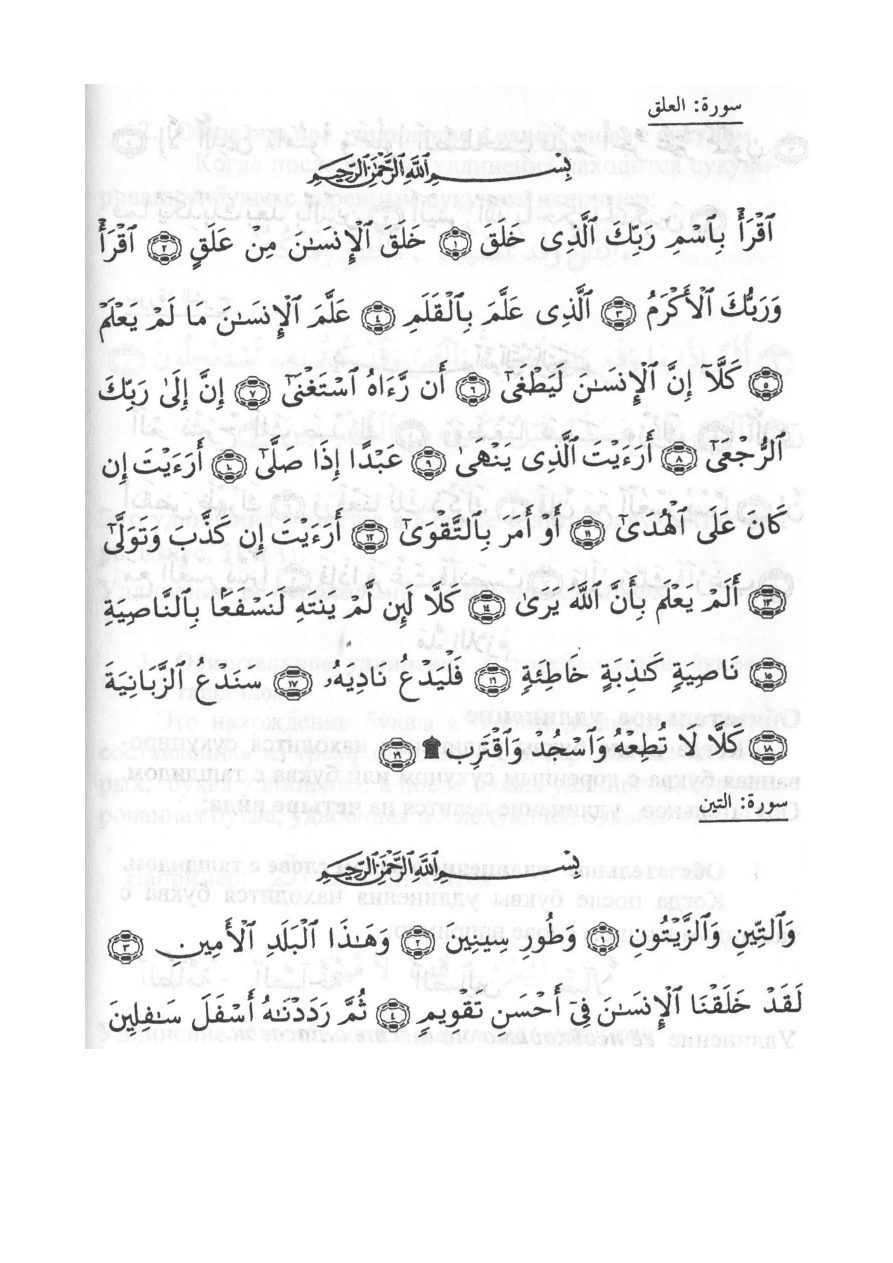 سورة: العلق
بِسْمِ ٱللَّهِ ٱلرَّحْمَٰنِ ٱلرَّحِيمِ
ٱقْرَأْ بِٱسْمِ رَبِّكَ ٱلَّذِى خَلَقَ ﴿١﴾ خَلَقَ ٱلْإِنسَٰنَ مِنْ عَلَقٍ ﴿٢﴾ ٱقْرَأْ
وَرَبُّكَ ٱلْأَكْرَمُ ﴿٣﴾ ٱلَّذِى عَلَّمَ بِٱلْقَلَمِ ﴿٤﴾ عَلَّمَ ٱلْإِنسَٰنَ مَا لَمْ يَعْلَمْ
﴿٥﴾ كَلَّآ إِنَّ ٱلْإِنسَٰنَ لَيَطْغَىٰٓ ﴿٦﴾ أَن رَّءَاهُ ٱسْتَغْنَىٰٓ ﴿٧﴾ إِنَّ إِلَىٰ رَبِّكَ
ٱلرُّجْعَىٰٓ ﴿٨﴾ أَرَءَيْتَ ٱلَّذِى يَنْهَىٰ ﴿٩﴾ عَبْدًا إِذَا صَلَّىٰٓ ﴿١٠﴾ أَرَءَيْتَ إِن
كَانَ عَلَى ٱلْهُدَىٰٓ ﴿١١﴾ أَوْ أَمَرَ بِٱلتَّقْوَىٰٓ ﴿١٢﴾ أَرَءَيْتَ إِن كَذَّبَ وَتَوَلَّىٰٓ
﴿١٣﴾ أَلَمْ يَعْلَم بِأَنَّ ٱللَّهَ يَرَىٰ ﴿١٤﴾ كَلَّا لَئِن لَّمْ يَنتَهِ لَنَسْفَعًۢا بِٱلنَّاصِيَةِ
﴿١٥﴾ نَاصِيَةٍ كَٰذِبَةٍ خَاطِئَةٍ ﴿١٦﴾ فَلْيَدْعُ نَادِيَهُۥ ﴿١٧﴾ سَنَدْعُ ٱلزَّبَانِيَةَ
﴿١٨﴾ كَلَّا لَا تُطِعْهُ وَٱسْجُدْ وَٱقْتَرِب ۩ ﴿١٩﴾
سورة: التين
بِسْمِ ٱللَّهِ ٱلرَّحْمَٰنِ ٱلرَّحِيمِ
وَٱلتِّينِ وَٱلزَّيْتُونِ ﴿١﴾ وَطُورِ سِينِينَ ﴿٢﴾ وَهَٰذَا ٱلْبَلَدِ ٱلْأَمِينِ ﴿٣﴾
لَقَدْ خَلَقْنَا ٱلْإِنسَٰنَ فِىٓ أَحْسَنِ تَقْوِيمٍ ﴿٤﴾ ثُمَّ رَدَدْنَٰهُ أَسْفَلَ سَٰفِلِينَ